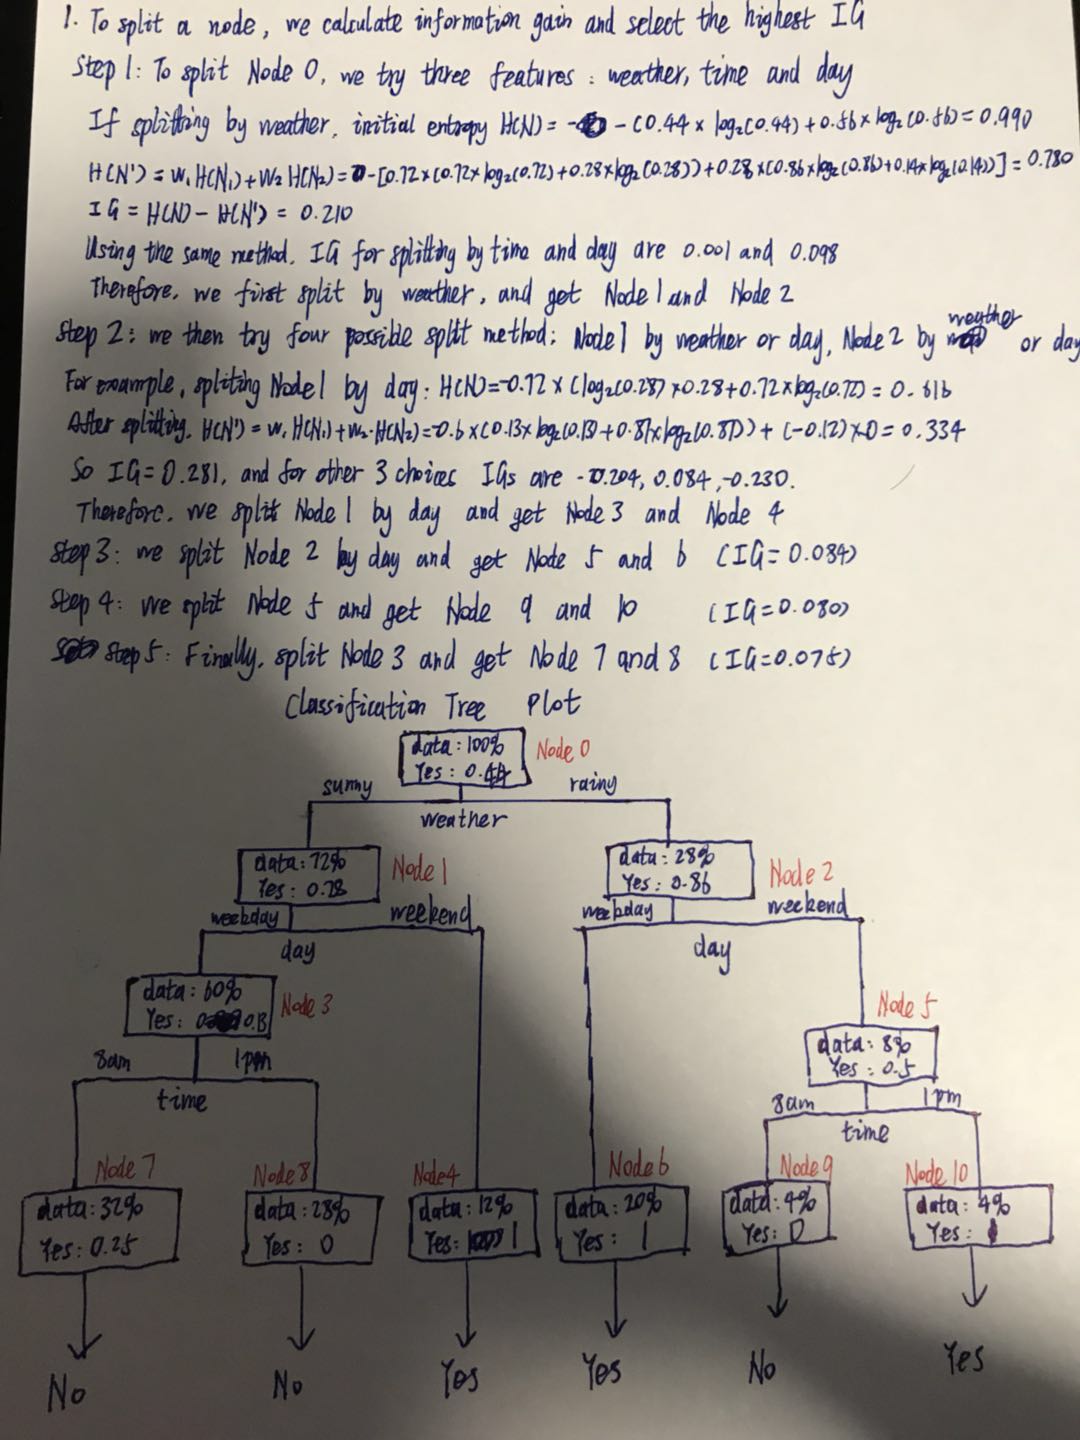 1. To split a node, we calculate information gain and select the highest IG
Step 1: To split Node 0, we try three features: weather, time and day
If splitting by weather, initial entropy H(N) = - (0.44 × log2(0.44) + 0.56 × log2(0.56) = 0.990
H(N') = W1 H(N1) + W2 H(N2) = -[0.72×(0.72×log2(0.72)+0.28×log2(0.28))+0.28×(0.86×log2(0.86)+0.14×log2(0.14))] = 0.780
IG = H(N) - H(N') = 0.210
Using the same method, IG for splitting by time and day are 0.001 and 0.098
Therefore, we first split by weather, and get Node 1 and Node 2
Step 2: we then try four possible split method: Node 1 by weather or day, Node 2 by weather or day
For example, spliting Node 1 by day: H(N)=-0.72 × (log2(0.28)×0.28+0.72×log2(0.72) = 0.616
After splitting, H(N') = W1 H(N1)+W2·H(N2)=-0.6×(0.13×log2(0.13)+0.87×log2(0.87))+(-0.12)×0=0.334
So IG=0.281, and for other 3 choices IGs are -0.204, 0.084, -0.230.
Therefore, we split Node 1 by day and get Node 3 and Node 4
Step 3: we split Node 2 by day and get Node 5 and 6 (IG=0.084)
Step 4: we split Node 5 and get Node 9 and 10 (IG=0.080)
Step 5: Finally, split Node 3 and get Node 7 and 8 (IG=0.075)
Classification Tree Plot
data: 100% Node 0
Yes: 0.44
sunny rainy
weather
data: 72% Node 1 data: 28% Node 2
Yes: 0.28 Yes: 0.86
weekday weekend weekday weekend
day day
data: 60% Node 3 Node 5
Yes: 0.13 data: 8%
Yes: 0.5
8am 1pm 8am 1pm
time time
Node 7 Node 8 Node 4 Node 6 Node 9 Node 10
data: 32% data: 28% data: 12% data: 20% data: 4% data: 4%
Yes: 0.25 Yes: 0 Yes: 1 Yes: 1 Yes: 0 Yes: 1
No No Yes Yes No Yes